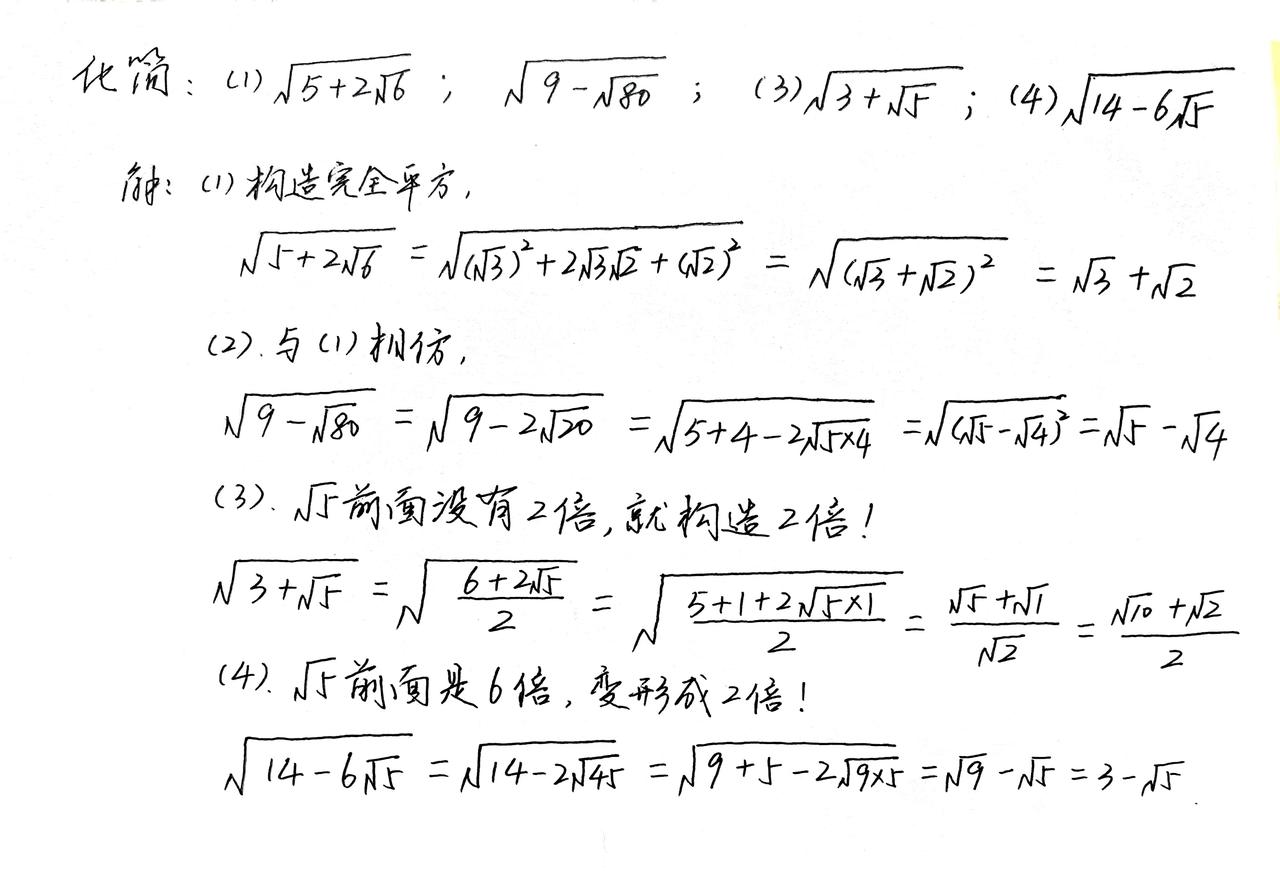 化简：(1)√(5+2√6)； √(9-√80)； (3)√(3+√5)；(4)√(14-6√5)
解：(1)构造完全平方，
√(5+2√6) = √((√3)²+2√3√2+(√2)²) = √((√3+√2)²) = √3+√2
(2).与(1)相仿，
√(9-√80) = √(9-2√20) = √(5+4-2√(5×4)) = √((√5-√4)²) = √5-√4
(3).√5前面没有2倍，就构造2倍！
√(3+√5) = √((6+2√5)/2) = √((5+1+2√(5×1))/2) = (√5+√1)/√2 = (√10+√2)/2
(4).√5前面是6倍，变形成2倍！
√(14-6√5) = √(14-2√45) = √(9+5-2√(9×5)) = √9-√5 = 3-√5